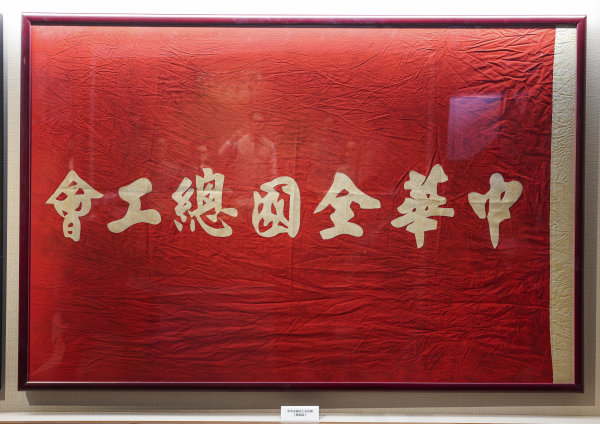 中華全國總工會